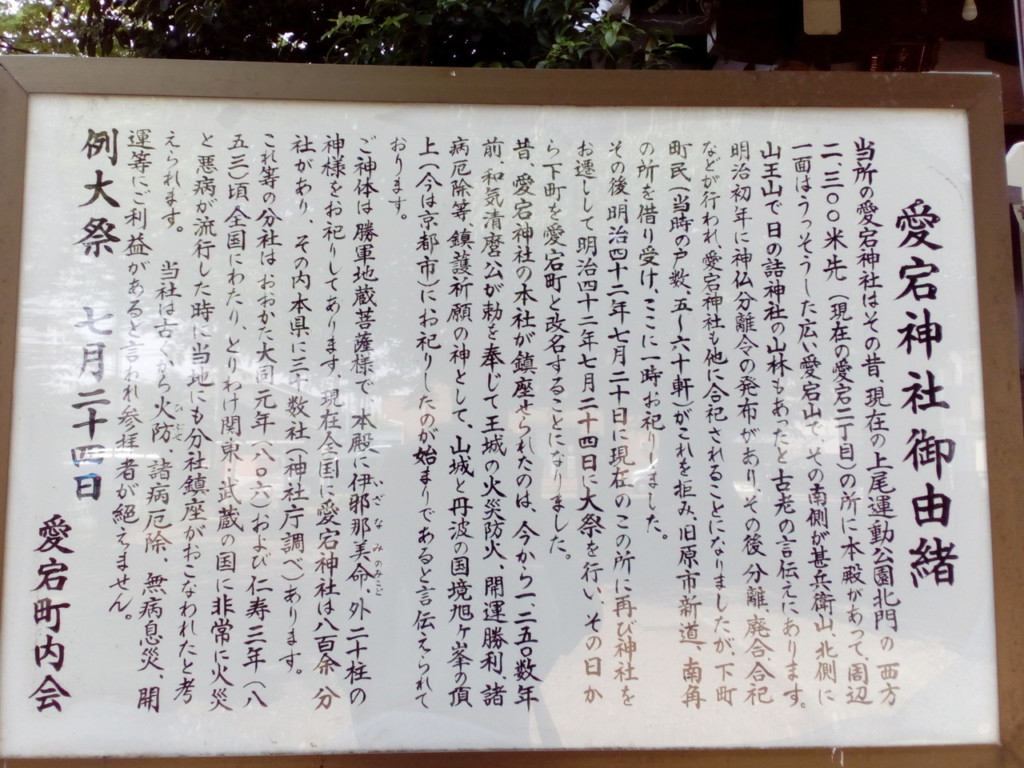 愛宕神社御由緒
当所の愛宕神社はその昔、現在の上尾運動公園北門の西方
二、三〇〇米先（現在の愛宕二丁目）の所に本殿があって、周辺
一面はうっそうした広い愛宕山で、その南側が甚兵衛山、北側に
山王山で日の詰神社の山林もあったと古老の言伝えにあります。
明治初年に神仏分離令の発布があり、その後、分離、廃合、合祀
などが行われ、愛宕神社も他に合祀されることになりましたが、下町
町民（当時の戸数、五～六十軒）がこれを拒み、旧原市新道、南角
の所を借り受け、ここに一時お祀りしました。
その後、明治四十二年七月二十日に現在のこの所に再び神社を
お遷しして明治四十二年七月二十四日に大祭を行い、その日か
ら下町を愛宕町と改名することになりました。
昔、愛宕神社の本社が鎮座せられたのは、今から一、二五〇数年
前、和気清麿公が勅を奉じて王城の火災防火、開運勝利、諸
病厄除等、鎮護祈願の神として、山城と丹波の国境旭ヶ峯の頂
上（今は京都市）にお祀りしたのが始まりであると言伝えられて
おります。
ご神体は勝軍地蔵菩薩様で、本殿に伊邪那美命、外二十柱の
いざなみのみこと
神様をお祀りしてあります。現在全国に愛宕神社は八百余分
社があり、その内本県に三十数社（神社庁調べ）あります。
これ等の分社はおおかた大同元年（八〇六）および仁寿三年（八
五三）頃全国にわたり、とりわけ関東・武蔵の国に非常に火災
と悪病が流行した時に当地にも分社鎮座がおこなわれたと考
えられます。　当社は古くから火防、諸病厄除、無病息災、開
運等にご利益があると言われ参拝者が絶えません。
例大祭　七月二十四日
愛宕町内会